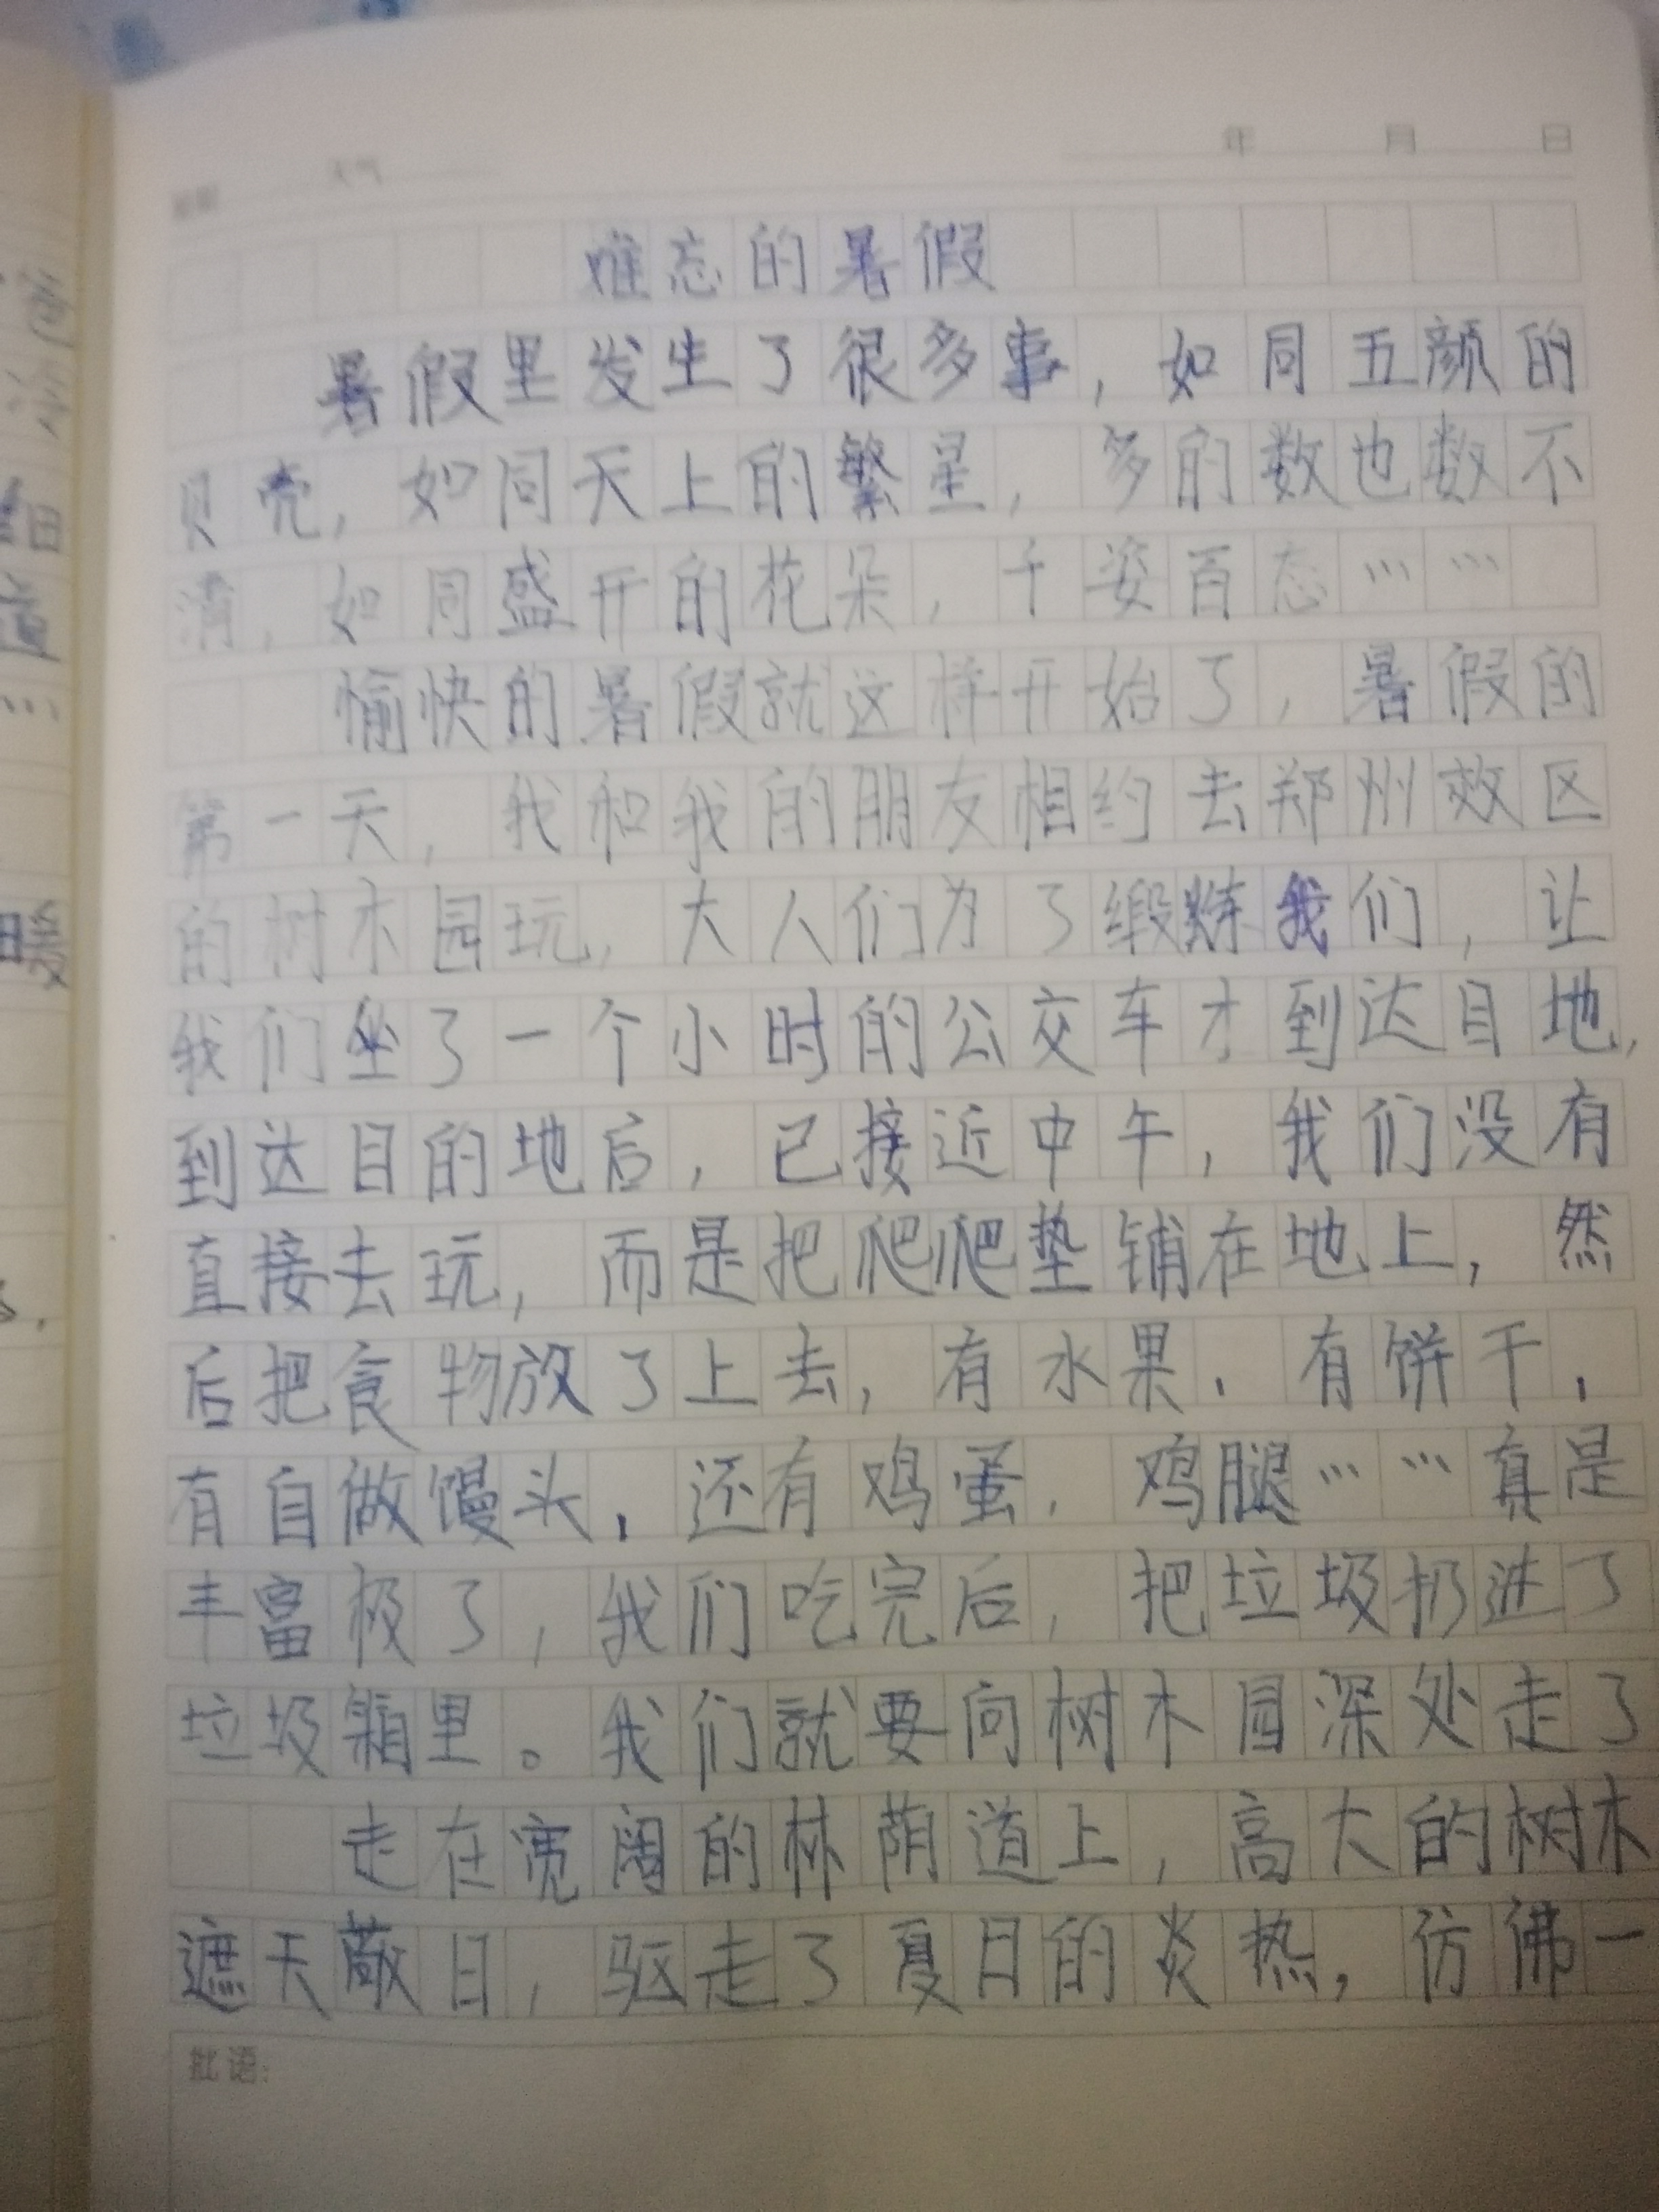 年 月 日
天气
难忘的暑假
暑假里发生了很多事，如同五颜的
贝壳，如同天上的繁星，多的数也数不
清，如同盛开的花朵，千姿百态……
愉快的暑假就这样开始了，暑假的
第一天，我和我的朋友相约去郑州效区
的树木园玩，大人们为了缎炼我们，让
我们坐了一个小时的公交车才到达目地，
到达目的地后，已接近中午，我们没有
直接去玩，而是把爬爬垫铺在地上，然
后把食物放了上去，有水果，有饼干，
有自做馒头，还有鸡蛋，鸡腿……真是
丰富极了，我们吃完后，把垃圾扔进了
垃圾箱里。我们就要向树木园深处走了
走在宽阔的林荫道上，高大的树木
遮天蔽日，驱走了夏日的炎热，仿佛一
批语：